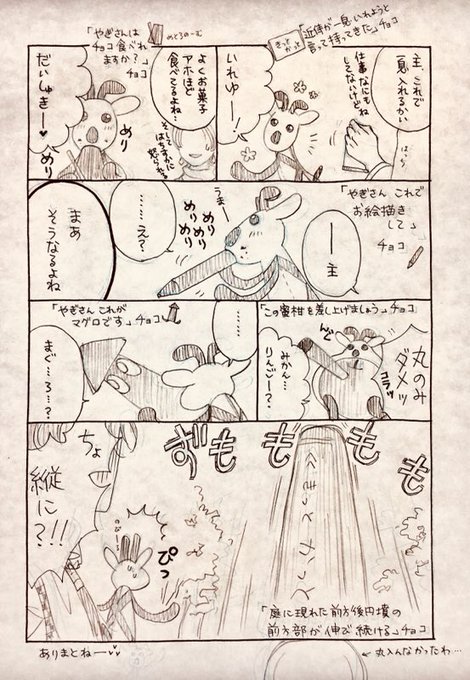 きっとかっと
「近侍が一息いれようと
言って持ってきた」チョコ
主、これで
一息入れるかい
仕事なにも
してないけどね
はらっ
いれゆー!
「やぎさんは
チョコ食べれ
ますか?」
チョコ
めとろのーむ
よくお菓子
アホほど
食べてるよね…
そしてはちすかに
怒られる
だいしゅきー♥
めり
めり
「やぎさん これで
お絵描き
して」
チョコ
主ー
うまー
めりっ
めりめり
めりめり
……え?
まあ
そうなるよね
「この蜜柑を差し上げましょう」チョコ
丸のみ
ダメッ
コラッ
んぐ
みかん…
りんごー?
「やぎさん これが
マグロです」チョコ
……
まぐ…ろ…?
ずもももも
きっとかっと
ちょ
縦に?!!
ぴっ
「庭に現れた前方後円墳の
前方部が伸び続ける」チョコ
ありまとねー♥
←丸入んなかったわ…